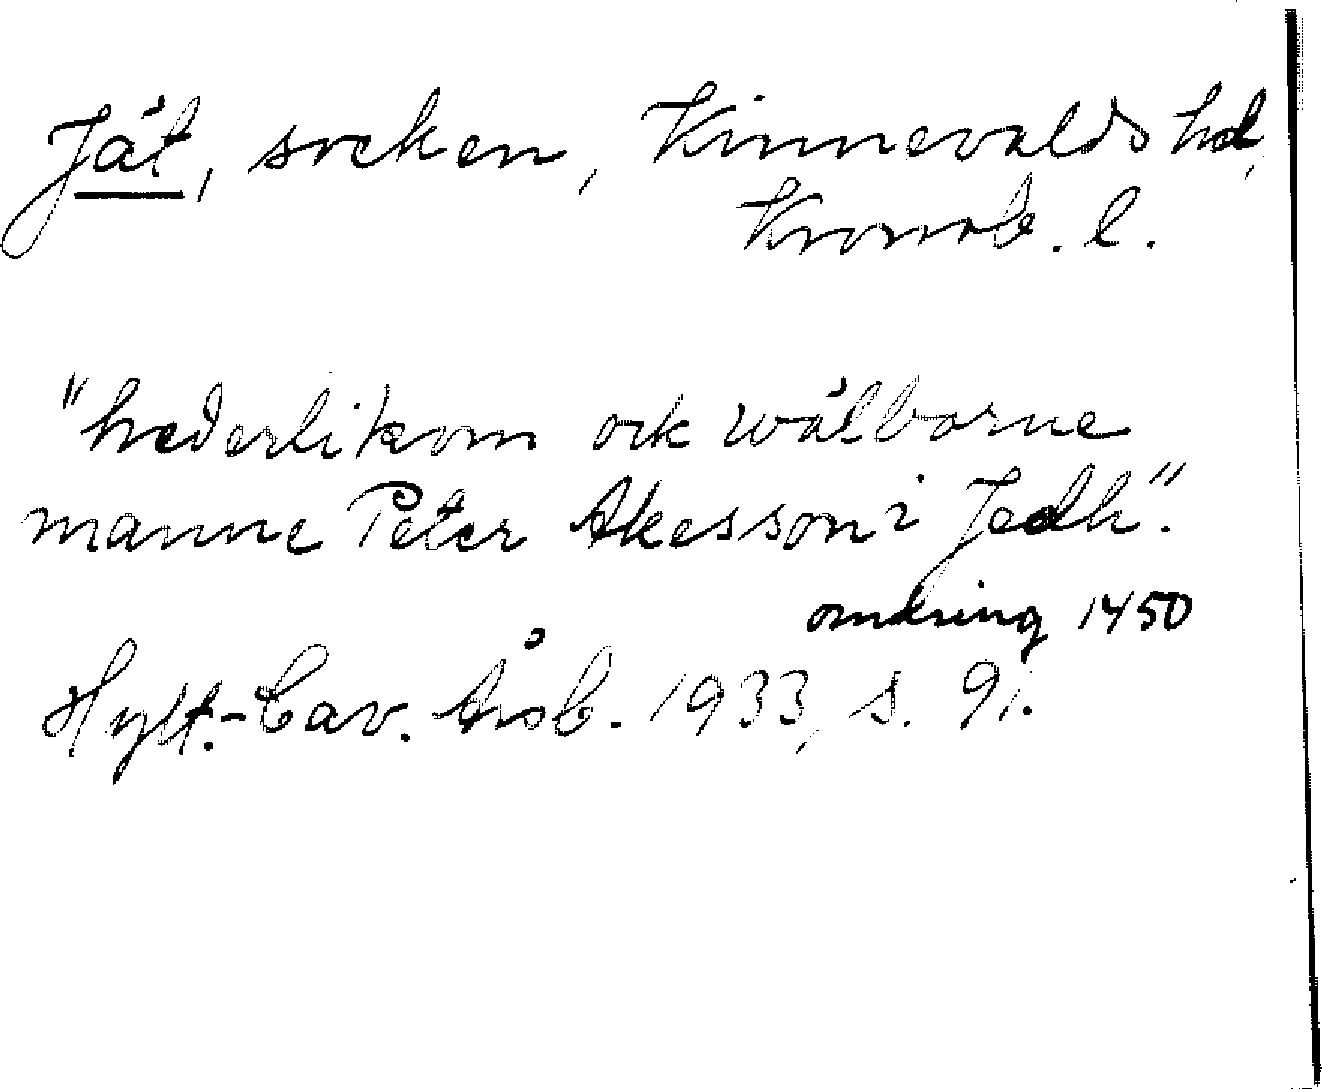 Jät, socken, Kinnevalds hd,
Kronob. l.
"hederlikom ock wälborne
manne Peter Akesson i Jedh".
omkring 1450
Hylt.-Cav. Årsb. 1933, s. 91.